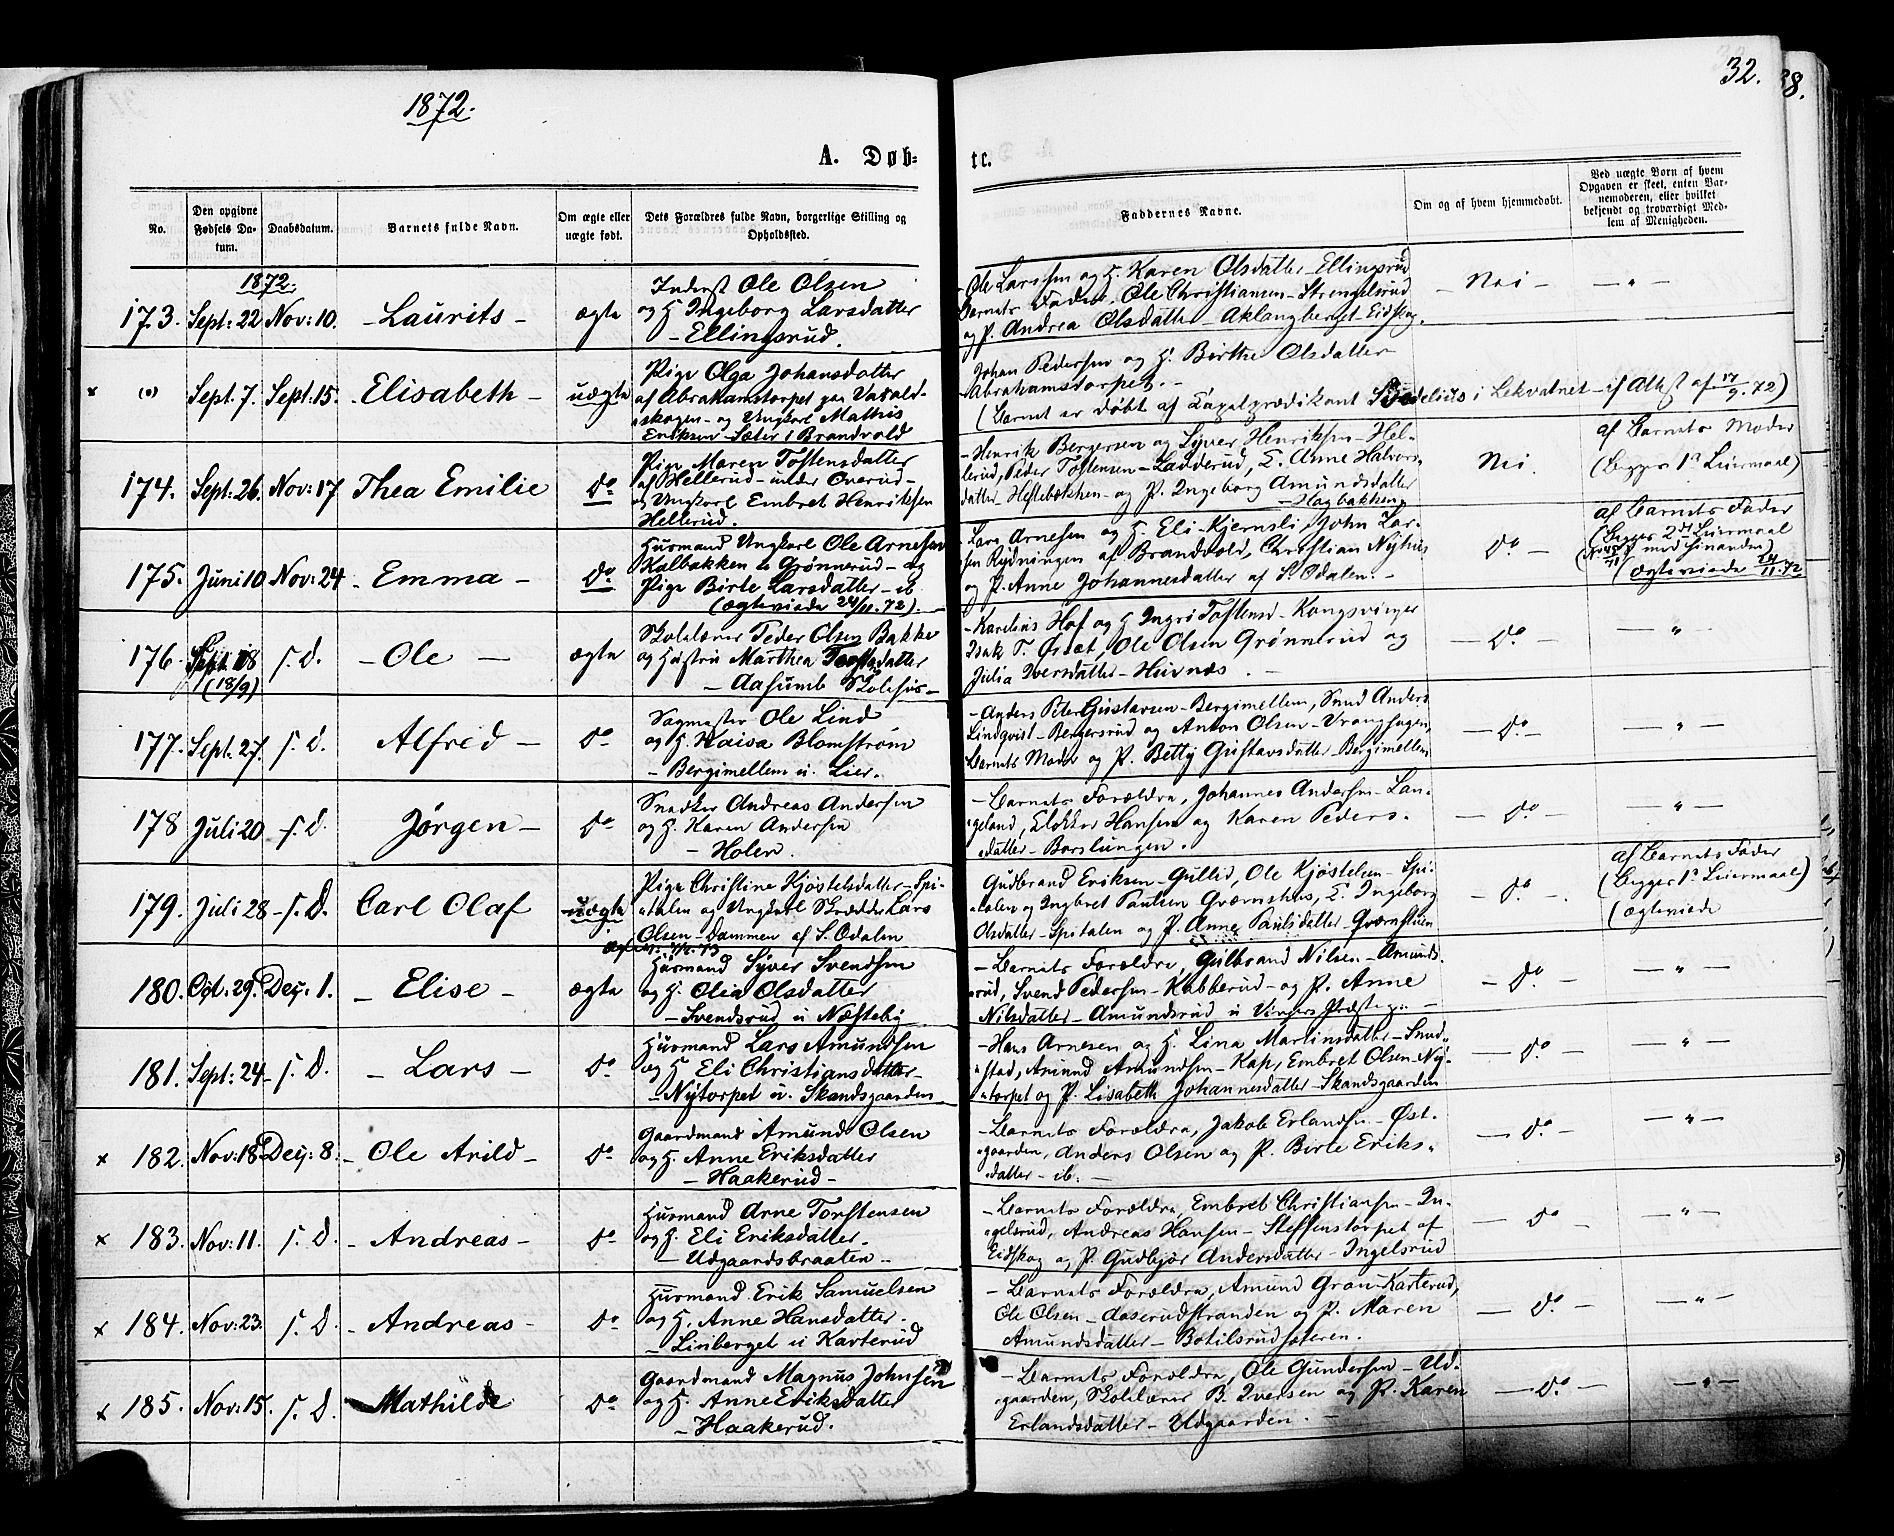 1872.
32.
38.
A. Døb-
te.
No.
Den opgivne Fødsels Datum.
Daabsdatum.
Barnets fulde Navn.
Om ægte eller uægte født.
Dets Forældres fulde Navn, borgerlige Stilling og Opholdssted.
Faddernes Navne.
Om og af hvem hjemmedøbt.
Ved uægte Børn af hvem Opgaven er skeet, enten Barnemoderen, eller hvilket bekjendt og troværdigt Medlem af Menigheden.
1872.
173. Sept: 22 Nov: 10. - Laurits - ægte
Inderst Ole Olsen
og H. Ingeborg Larsdatter
- Ellingsrud.
- Ole Larssen og H. Karen Olsdatter - Ellingsrud
Barnets Fader, Ole Christiansen - Strengelsrud
og P. Andrea Olsdatter - Aklangberget - Eidskog.
- Nei - - " -
x (0) Sept. 7. Sept: 15. Elisabeth - uægte
Pige Olga Johansdatter
af Abrahamstorpet paa Varald-
skogen - og Ungkarl Mathis
Eriksen Sæter i Brandvold
Johan Pedersen og H. Birthe Olsdatter
Abrahamstorpet. -
(Barnet er døbt af Capelprædikant i Lekvatnet - if Attest af 17/9. 72)
174. Sept: 26. Nov: 17 Thea Emilie do
Pige Maren Tostensdatter
af Hellerud - under Overud -
og Ungkarl Embret Henriksen
Hellerud.
- Henrik Bergersen og Syver Henriksen - Hel-
lerud, Peder Tostensen - Ladderud, E. Anne Halvors-
datter - Heftebækken - og P. Ingeborg Amundsdatter
- Hagbakken
Nei.
af Barnets Moder
(Begges 1ste Leiermaal)
175. Juni 10 Nov: 24 - Emma - do
Husmand Ungkarl Ole Arnesen
Kalbakken u Grønnerud - og
Pige Birte Larsdatter - ib.
(Ægteviede 24/11. 72).
- Lars Arnesen og H. Eli - Kjernsli, John Lar-
sen Rydningen af Brandvold, Christian Nyhus
og P. Anne Johannesdatter af S. Odalen. -
do -
af Barnets Fader
(Begges 2det Leiermaal
med hinanden)
(Ægteviede 24/11. 72
176. Sept 18 s. D. - Ole - ægte
(18/9)
Skolelærer Peder Olsen Bakke
og Hustru Marthea Tostsdatter
- Aasumb Skolehus -
- Karelius Hof og H Ingri Tostensd - Kongsvinger
Isak T. Ørsæt, Ole Olsen Grønnerud og
Julia Iversdatter - Huvnæs. -
- do - - " -
177. Sept. 27. s. D. Alfred - do
Sagmester Ole Lind
og H. Kaisa Blomstrøm
- Bergimellem u. Lier.
- Anders Peter Gustavsen - Bergimellem, Smed Anders
Lindqvist - Bergersrud og Anton Olsen - Vranghagen,
Barnets Moder og P. Betty Gustavsdatter - Bergimellem
- do - - " -
178 Juli 20 - s. D. Jørgen - do
Snedker Andreas Andersen
og H. Karen Andersen
- Holen.
- Barnets Forældre, Johannes Andersen - Lan-
geland, Klokker Hansen og Karen Peders-
datter - Barslungen.
- do - - " -
179. Juli 28 - s. D. Carl Olaf uægte
Pige Christine Kjøstelsdatter - Spi-
talen og Ungkarl Skrædder Lars
Olsen - Dammen af S. Odalen
Gudbrand Eriksen - Gullid, Ole Kjøstelsen - Spi-
talen og Ingbret Paulsen Grærnshus, E. Ingeborg
Olsdatter - Spitalen og P. Anne Paulsdatter
- do -
af Barnets Fader
(Begges 1ste Leiermaal)
(Ægteviede
180. Oct. 29. Dec: 1. - Elise - ægte
Husmand Syver Svendsen
og H. Olia Olsdatter
- Svendsrud u Næsteby
- Barnets Forældre, Gulbrand Nilsen - Amunds-
rud, Svend Pedersen - Kabberud - og P. Anne
Nilsdatter - Amundsrud u Vingers Præsteg. -
- do - - " -
181. Sept: 24 - s. D. - Lars - do
Husmand Lars Amundsen
og H Eli Christiansdatter -
- Nytorpet u. Skandsgaarden
- Hans Arnesen og H. Lina Martinsdatter - Smed-
stad, Amund Amundsen - Kap, Embret Olsen - Ny-
torpet og P. Lisabeth Johannesdatter - Skandsgaarden
- do - - " -
x 182. Nov: 18 Dec: 8. - Ole Arild - do
Gaardmand Amund Olsen
og H. Anne Eriksdatter
- Haakerud -
- Barnets Forældre, Jakob Erlandsen - Øst-
gaarden, Anders Olsen og P. Birte Eriks-
datter - ib. -
- do - - " -
x 183. Nov: 11. s. D. - Andreas - do
Husmand Arne Torstensen
og H. Eli Eriksdatter -
- Udgaardsbraaten -
- Barnets Forældre, Embret Christiansen - In-
gelsrud, Andreas Hansen - Steffenstorpet af
Eidskog og P. Gudbjør Andersdatter - Ingelsrud
- do - - " -
x 184. Nov: 23. s. D. - Andreas - do
Husmand Erik Samuelsen
og H. Anne Hansdatter.
- Linberget u Karterud
- Barnets Forældre, Amund Gran - Karterud,
Ole Olsen - Aaserudstranden og P. Maren
Amundsdatter - Botilsrudsæteren.
- do - - " -
x 185. Nov: 15. s. D. Mathilde do
Gaardmand Magnus Johnsen
og H. Anne Eriksdatter
- Haakerud.
- Barnets Forældre, Ole Gundersen - Ud-
gaarden, Skolelærer B. Iversen og P. Karen
Erlandsdatter - Udgaarden. -
- do - - " -